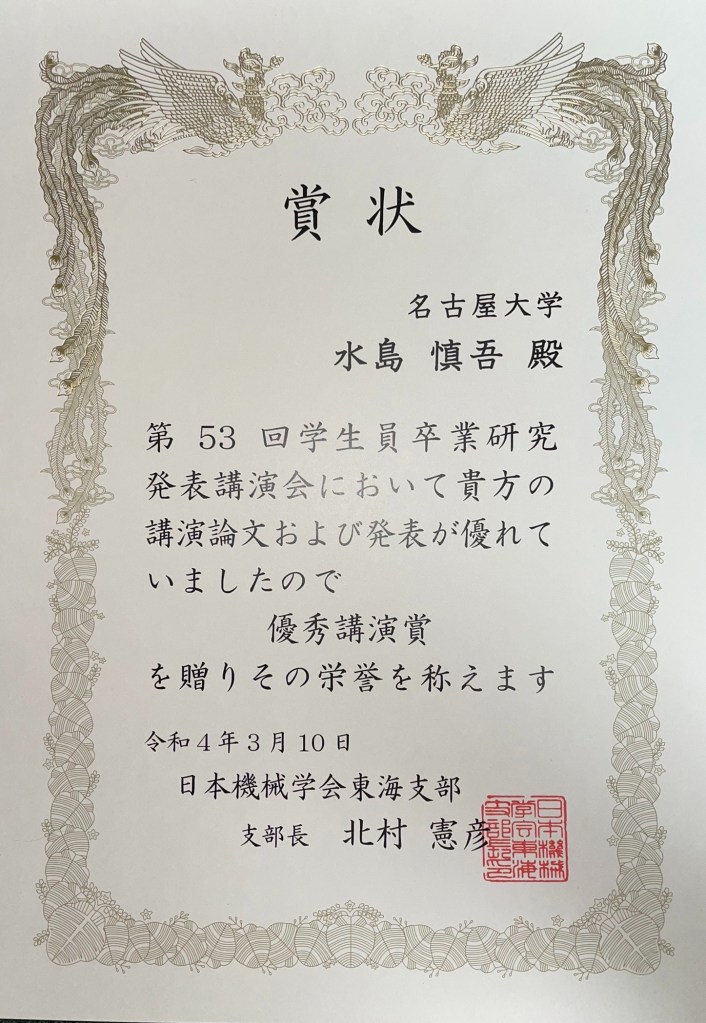 賞状
名古屋大学
水島 慎吾 殿
第 53 回学生員卒業研究
発表講演会において貴方の
講演論文および発表が優れて
いましたので
優秀講演賞
を贈りその栄誉を称えます
令和4年3月10日
日本機械学会東海支部
支部長 北村 憲彦
日本機械
学会東海
支部長印